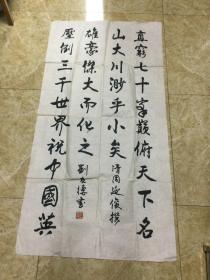 直窮七十峯巔俯天下名
山大川渺乎小矣 清周延俊撰
雄豪傑大而化之 劉友德書
壓倒三千世界祝中國英